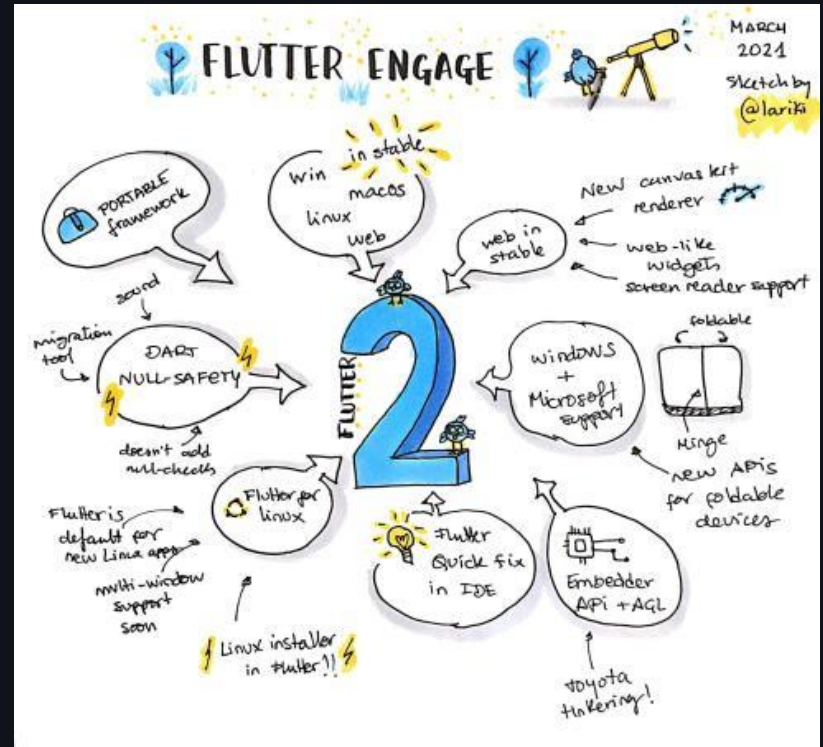 FLUTTER ENGAGE
MARCH
2021
Sketch by
@lariki
PORTABLE
framework
in stable
win
macos
linux
web
web in
stable
New canvas kit
renderer
web-like
widgets
screen reader support
sound
migration
tool
DART
NULL-SAFETY
doesn't add
null-checks
FLUTTER
2
windows
+
Microsoft
support
foldable
Hinge
new APIs
for foldable
devices
Flutter for
linux
Flutter is
default for
new Linux apps
multi-window
support
soon
Linux installer
in Flutter!!
Flutter
Quick fix
in IDE
Embedder
APi + AGL
toyota
tinkering!